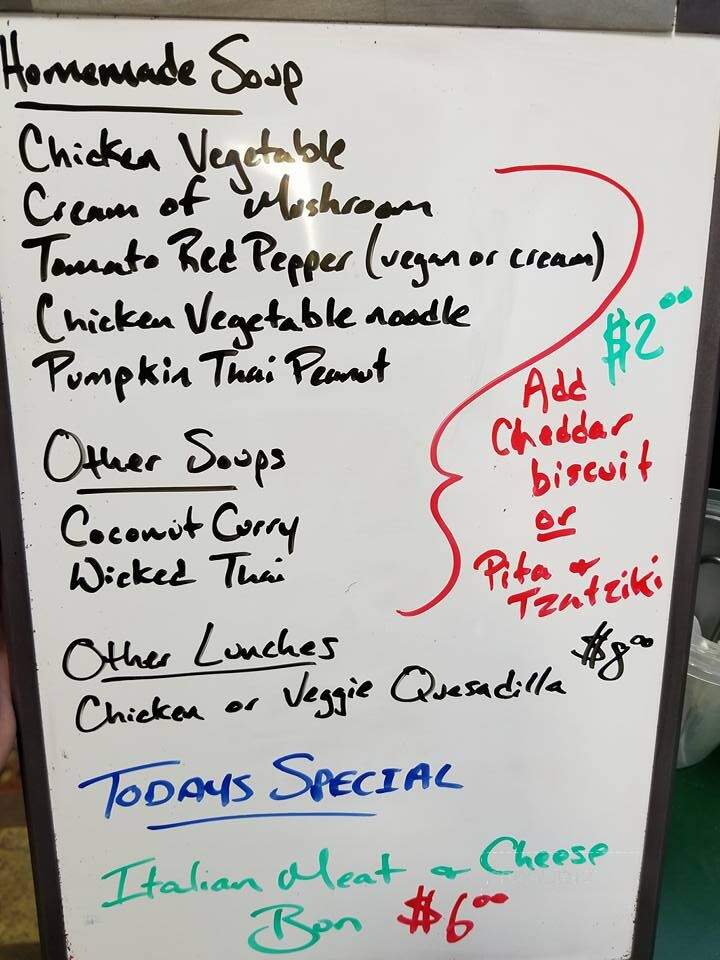 Homemade Soup
Chicken Vegetable
Cream of Mushroom
Tomato Red Pepper (vegan or cream)
Chicken Vegetable noodle
Pumpkin Thai Peanut
$2.00
Add
Cheddar
biscuit
or
Pita &
Tzatziki
Other Soups
Coconut Curry
Wicked Thai
Other Lunches
Chicken or Veggie Quesadilla $8.00
TODAYS SPECIAL
Italian Meat & Cheese
Bun $6.00